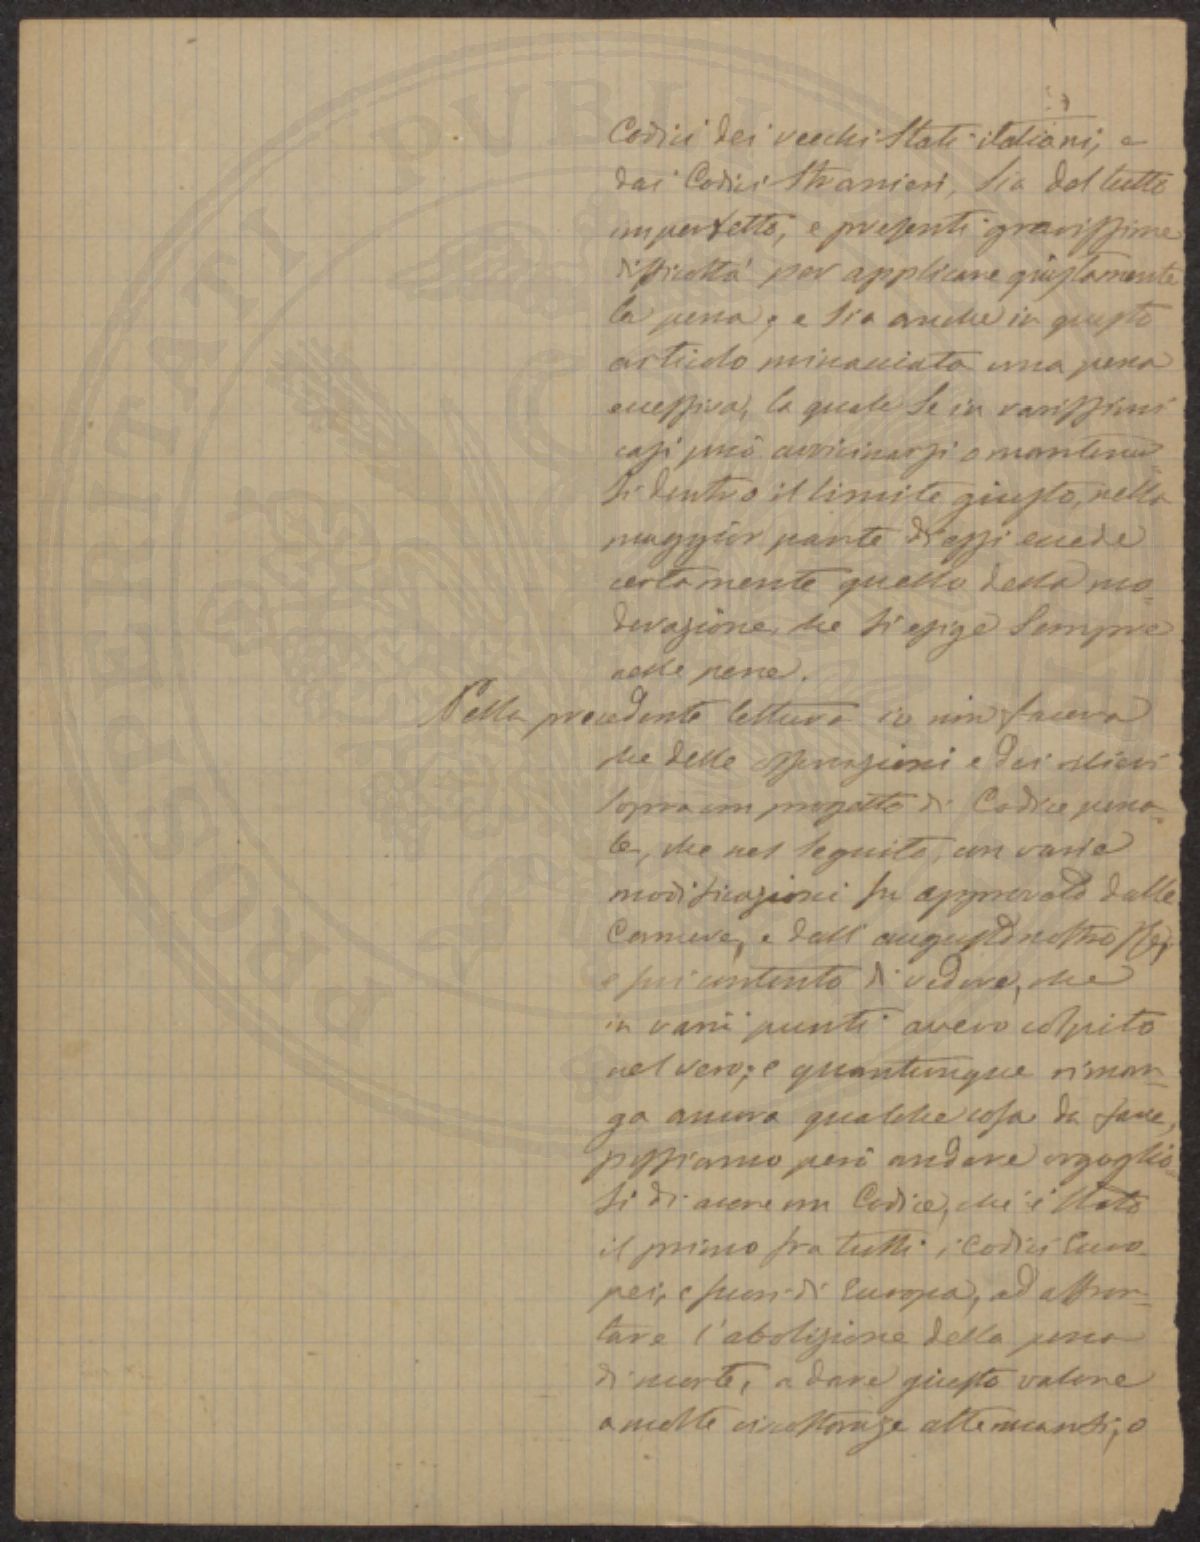 Codici dei vecchi Stati italiani, e
dai Codici stranieri, sia del tutto
imperfetto, e presenti gravissime
difficoltà per applicare giustamente
la pena; e sia anche in questo
articolo minacciata una pena
eccessiva, la quale se in rarissimi
casi può avvicinarsi o mantener
si dentro il limite giusto, nella
maggior parte di essi eccede
certamente quello della mo-
derazione, che si esige sempre
nelle pene.
Nella precedente lettura io non faceva
che delle osservazioni e dei rilievi
sopra un progetto di Codice pena-
le, che nel seguito, con varie
modificazioni fu approvato dalle
Camere, e dall'augusto nostro Re,
e fui contento di vedere, che
in varii punti avevo colpito
nel vero; e quantunque riman-
ga ancora qualche cosa da fare,
possiamo però andare orgoglio-
si di avere un Codice, che è stato
il primo fra tutti i Codici Euro-
pei, e fuori di Europa, ad affron-
tare l'abolizione della pena
di morte, a dare giusto valore
a molte circostanze attenuanti, o
POSTERITATI PUBLI